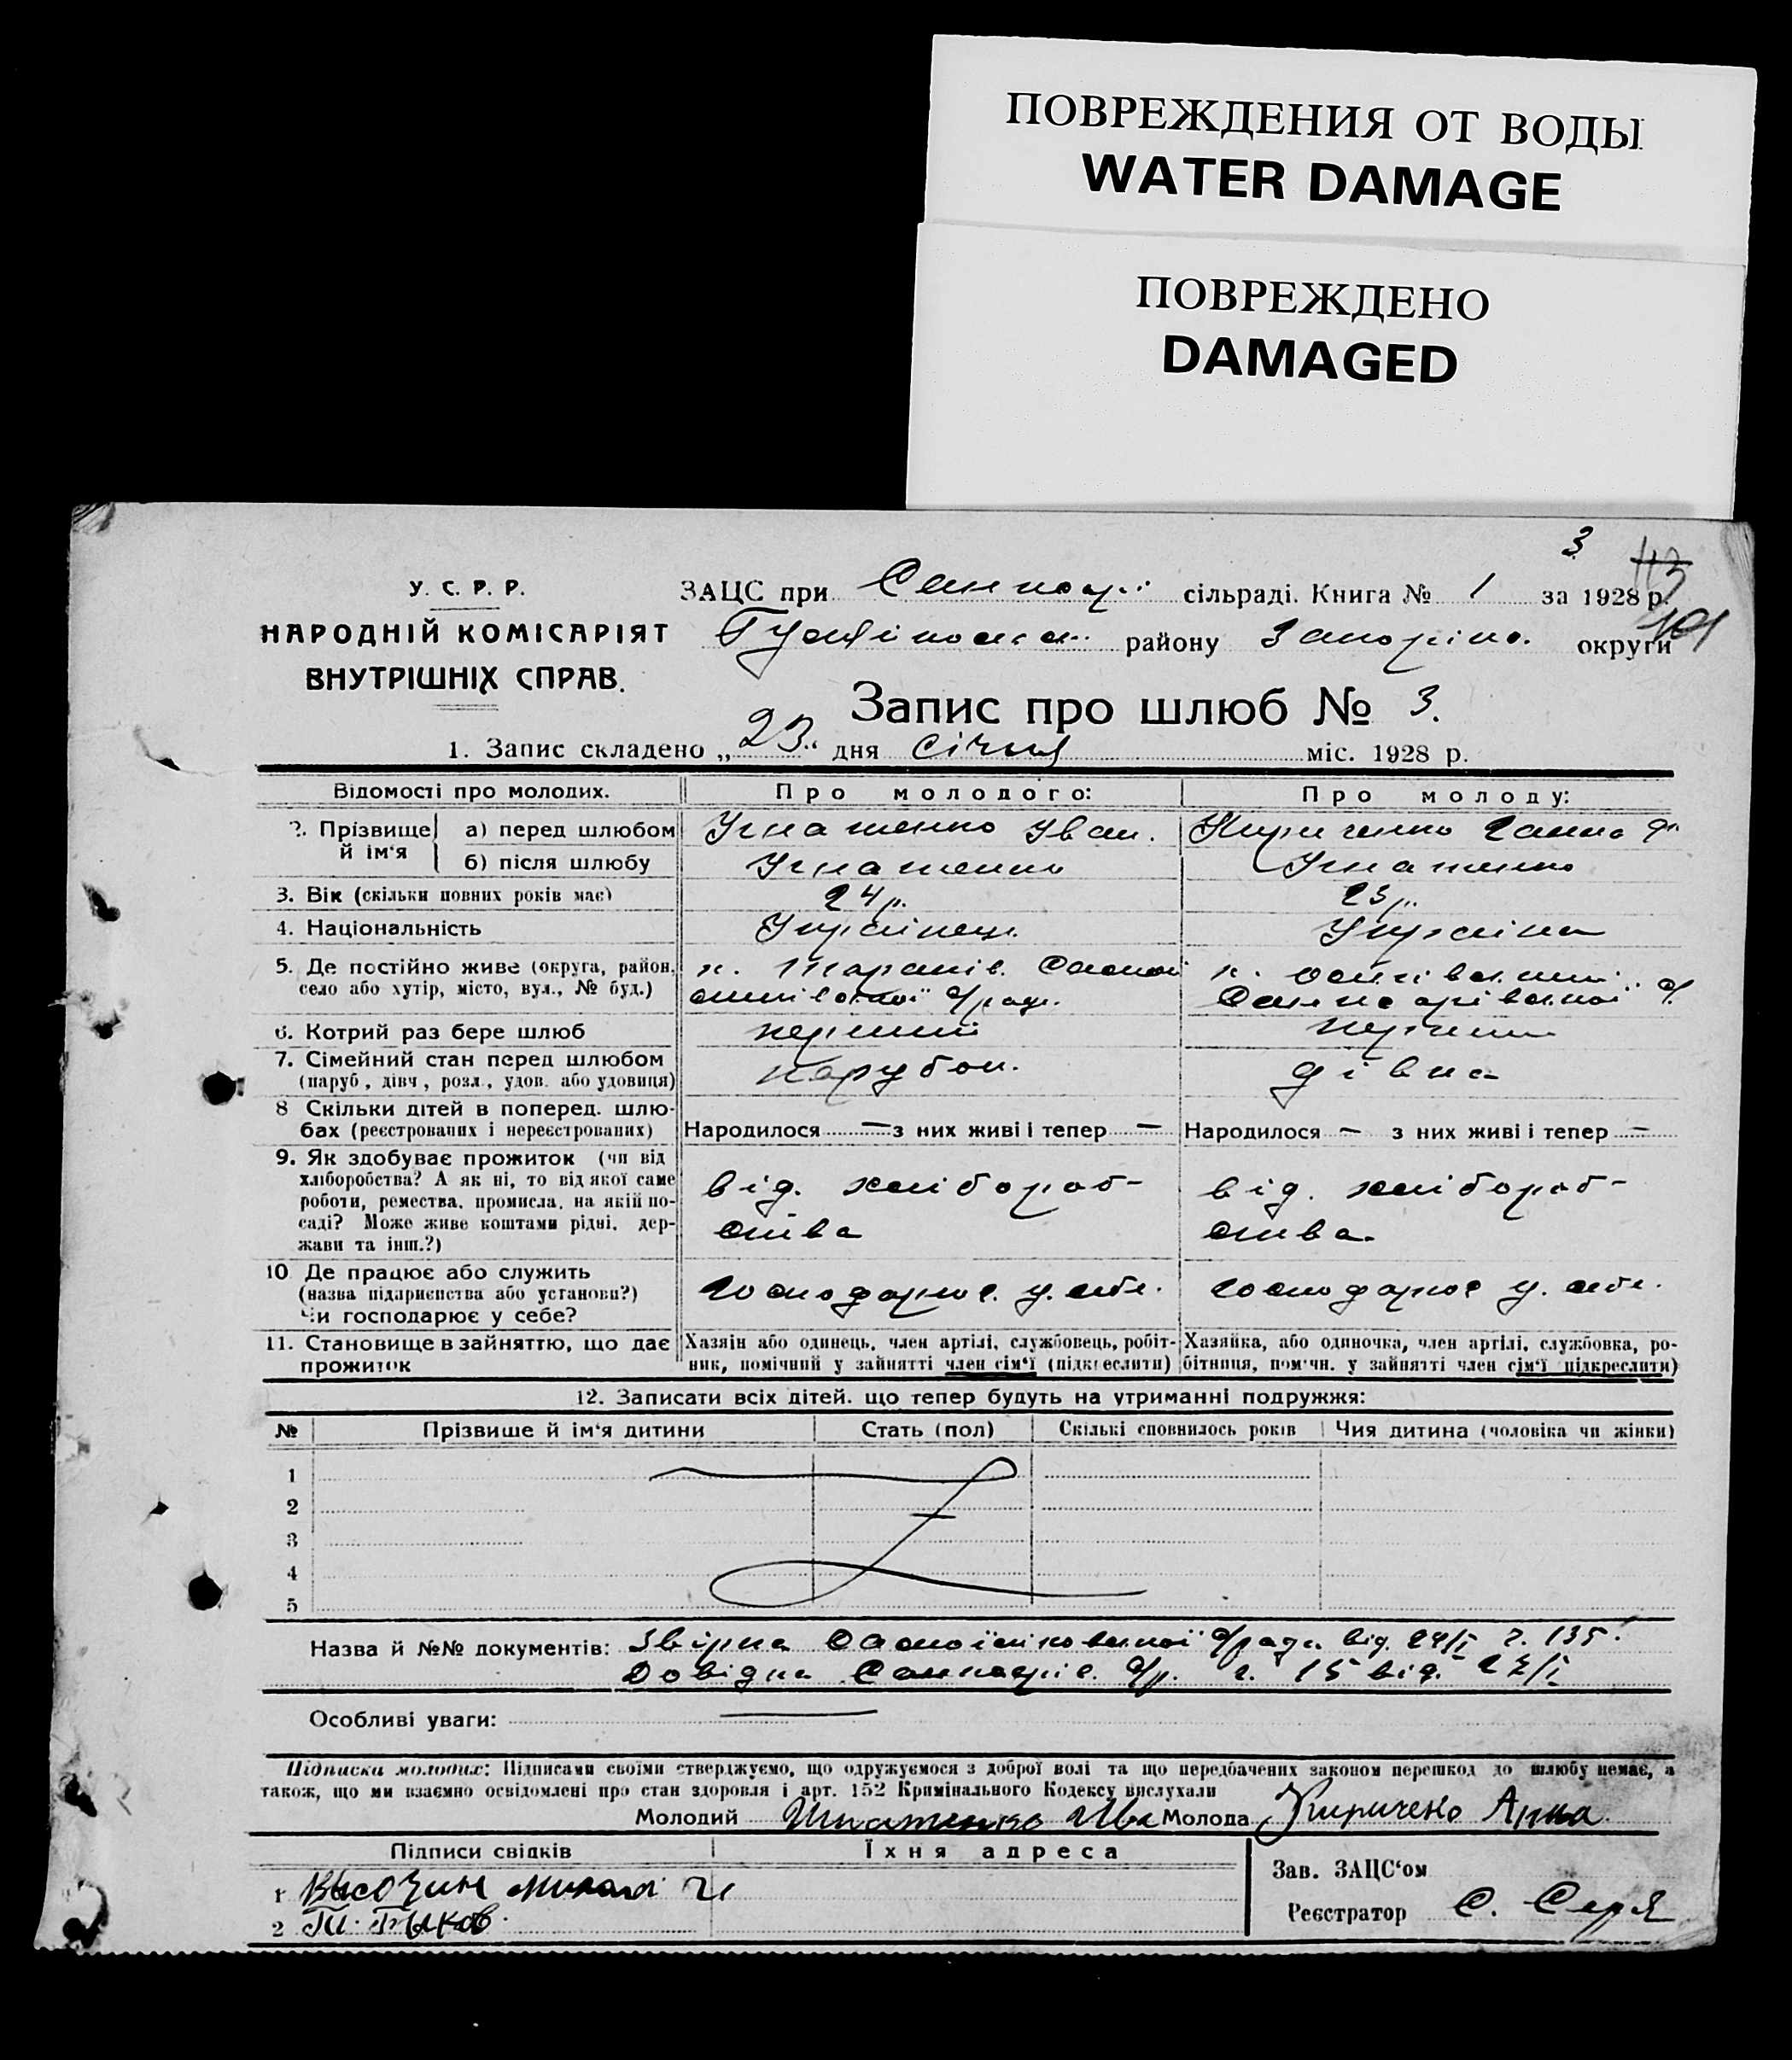 ПОВРЕЖДЕНИЯ ОТ ВОДЫ
WATER DAMAGE
ПОВРЕЖДЕНО
DAMAGED
3
113
101
У. С. Р. Р.
НАРОДНІЙ КОМІСАРІЯТ
ВНУТРІШНІХ СПРАВ.
ЗАЦС при сільраді. Книга № 1 за 1928 р.
району Запоріз. округи
Запис про шлюб № 3.
1. Запис складено „23“ дня січня міс. 1928 р.
Відомості про молодих. Про молодого: Про молоду:
2. Прізвище й ім‘я а) перед шлюбом Ігнатенко Іван. Кириченко Ганна
б) після шлюбу Ігнатенко Ігнатенко
3. Вік (скільки повних років має) 24 р. 23 р.
4. Національність Українець Українка
5. Де постійно живе (округа, район,
село або хутір, місто, вул., № буд.)
6. Котрий раз бере шлюб перший перший
7. Сімейний стан перед шлюбом
(паруб, дівч, розл., удов. або удовиця) парубок. дівка
8 Скільки дітей в поперед. шлю-
бах (реєстрованих і нереєстрованих) Народилося — з них живі і тепер — Народилося — з них живі і тепер —
9. Як здобуває прожиток (чи від
хліборобства? А як ні, то від якої саме
роботи, ремества, промисла, на якій по-
саді? Може живе коштами рідні, дер-
жави та інш.?)
від. хлібороб- від. хлібороб-
ства ства
10 Де працює або служить
(назва підприєнства або установи?)
Чи господарює у себе?
господарює у себе. господарює у себе.
11. Становище в зайняттю, що дає
прожиток
Хазяїн або одинець, член артілі, службовець, робіт-
ник, помічний у зайнятті член сім‘ї (підкреслити)
Хазяйка, або одиночка, член артілі, службовка, ро-
бітниця, помічн. у зайнятті член сім‘ї підкреслити)
12. Записати всіх дітей, що тепер будуть на утриманні подружжя:
№ Прізвище й ім‘я дитини Стать (пол) Скількі сповнилось років Чия дитина (чоловіка чи жінки)
1
2
3
4
5
Назва й №№ документів: від. 24/I ч. 135.
Довідка ч. 15 від.
Особливі уваги: —
Підписка молодих: Підписами своїми стверджуємо, що одружуємося з доброї волі та що передбачених законом перешкод до шлюбу немає, а
також, що ми взаємно освідомлені про стан здоровля і арт. 152 Кримінального Кодексу вислухали
Молодий Игнатенко Ив Молода Кириченко Анна
Підписи свідків Їхня адреса
1
2
Зав. ЗАЦС‘ом
Реєстратор С.